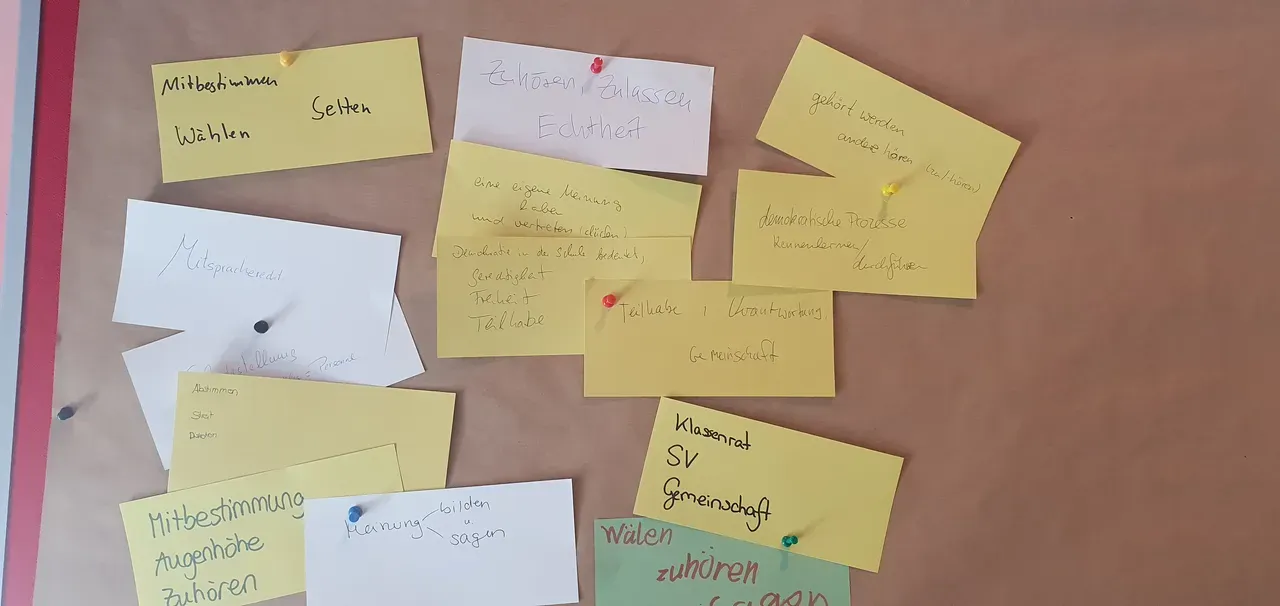 Mitbestimmen
Selten
Wählen
Zuhören, Zulassen
Echtheit
gehört werden
andere hören (zu/hören)
eine eigene Meinung
haben
und vertreten (dürfen)
demokratische Prozesse
kennenlernen/
durchführen
Mitspracherecht
Demokratie in der Schule bedeutet,
Gerechtigkeit
Freiheit
Teilhabe
Teilhabe, Verantwortung,
Gemeinschaft
Abstimmen
Streit
Mitbestimmung
Augenhöhe
Zuhören
Meinung bilden
u.
sagen
Klassenrat
SV
Gemeinschaft
Wälen
zuhören